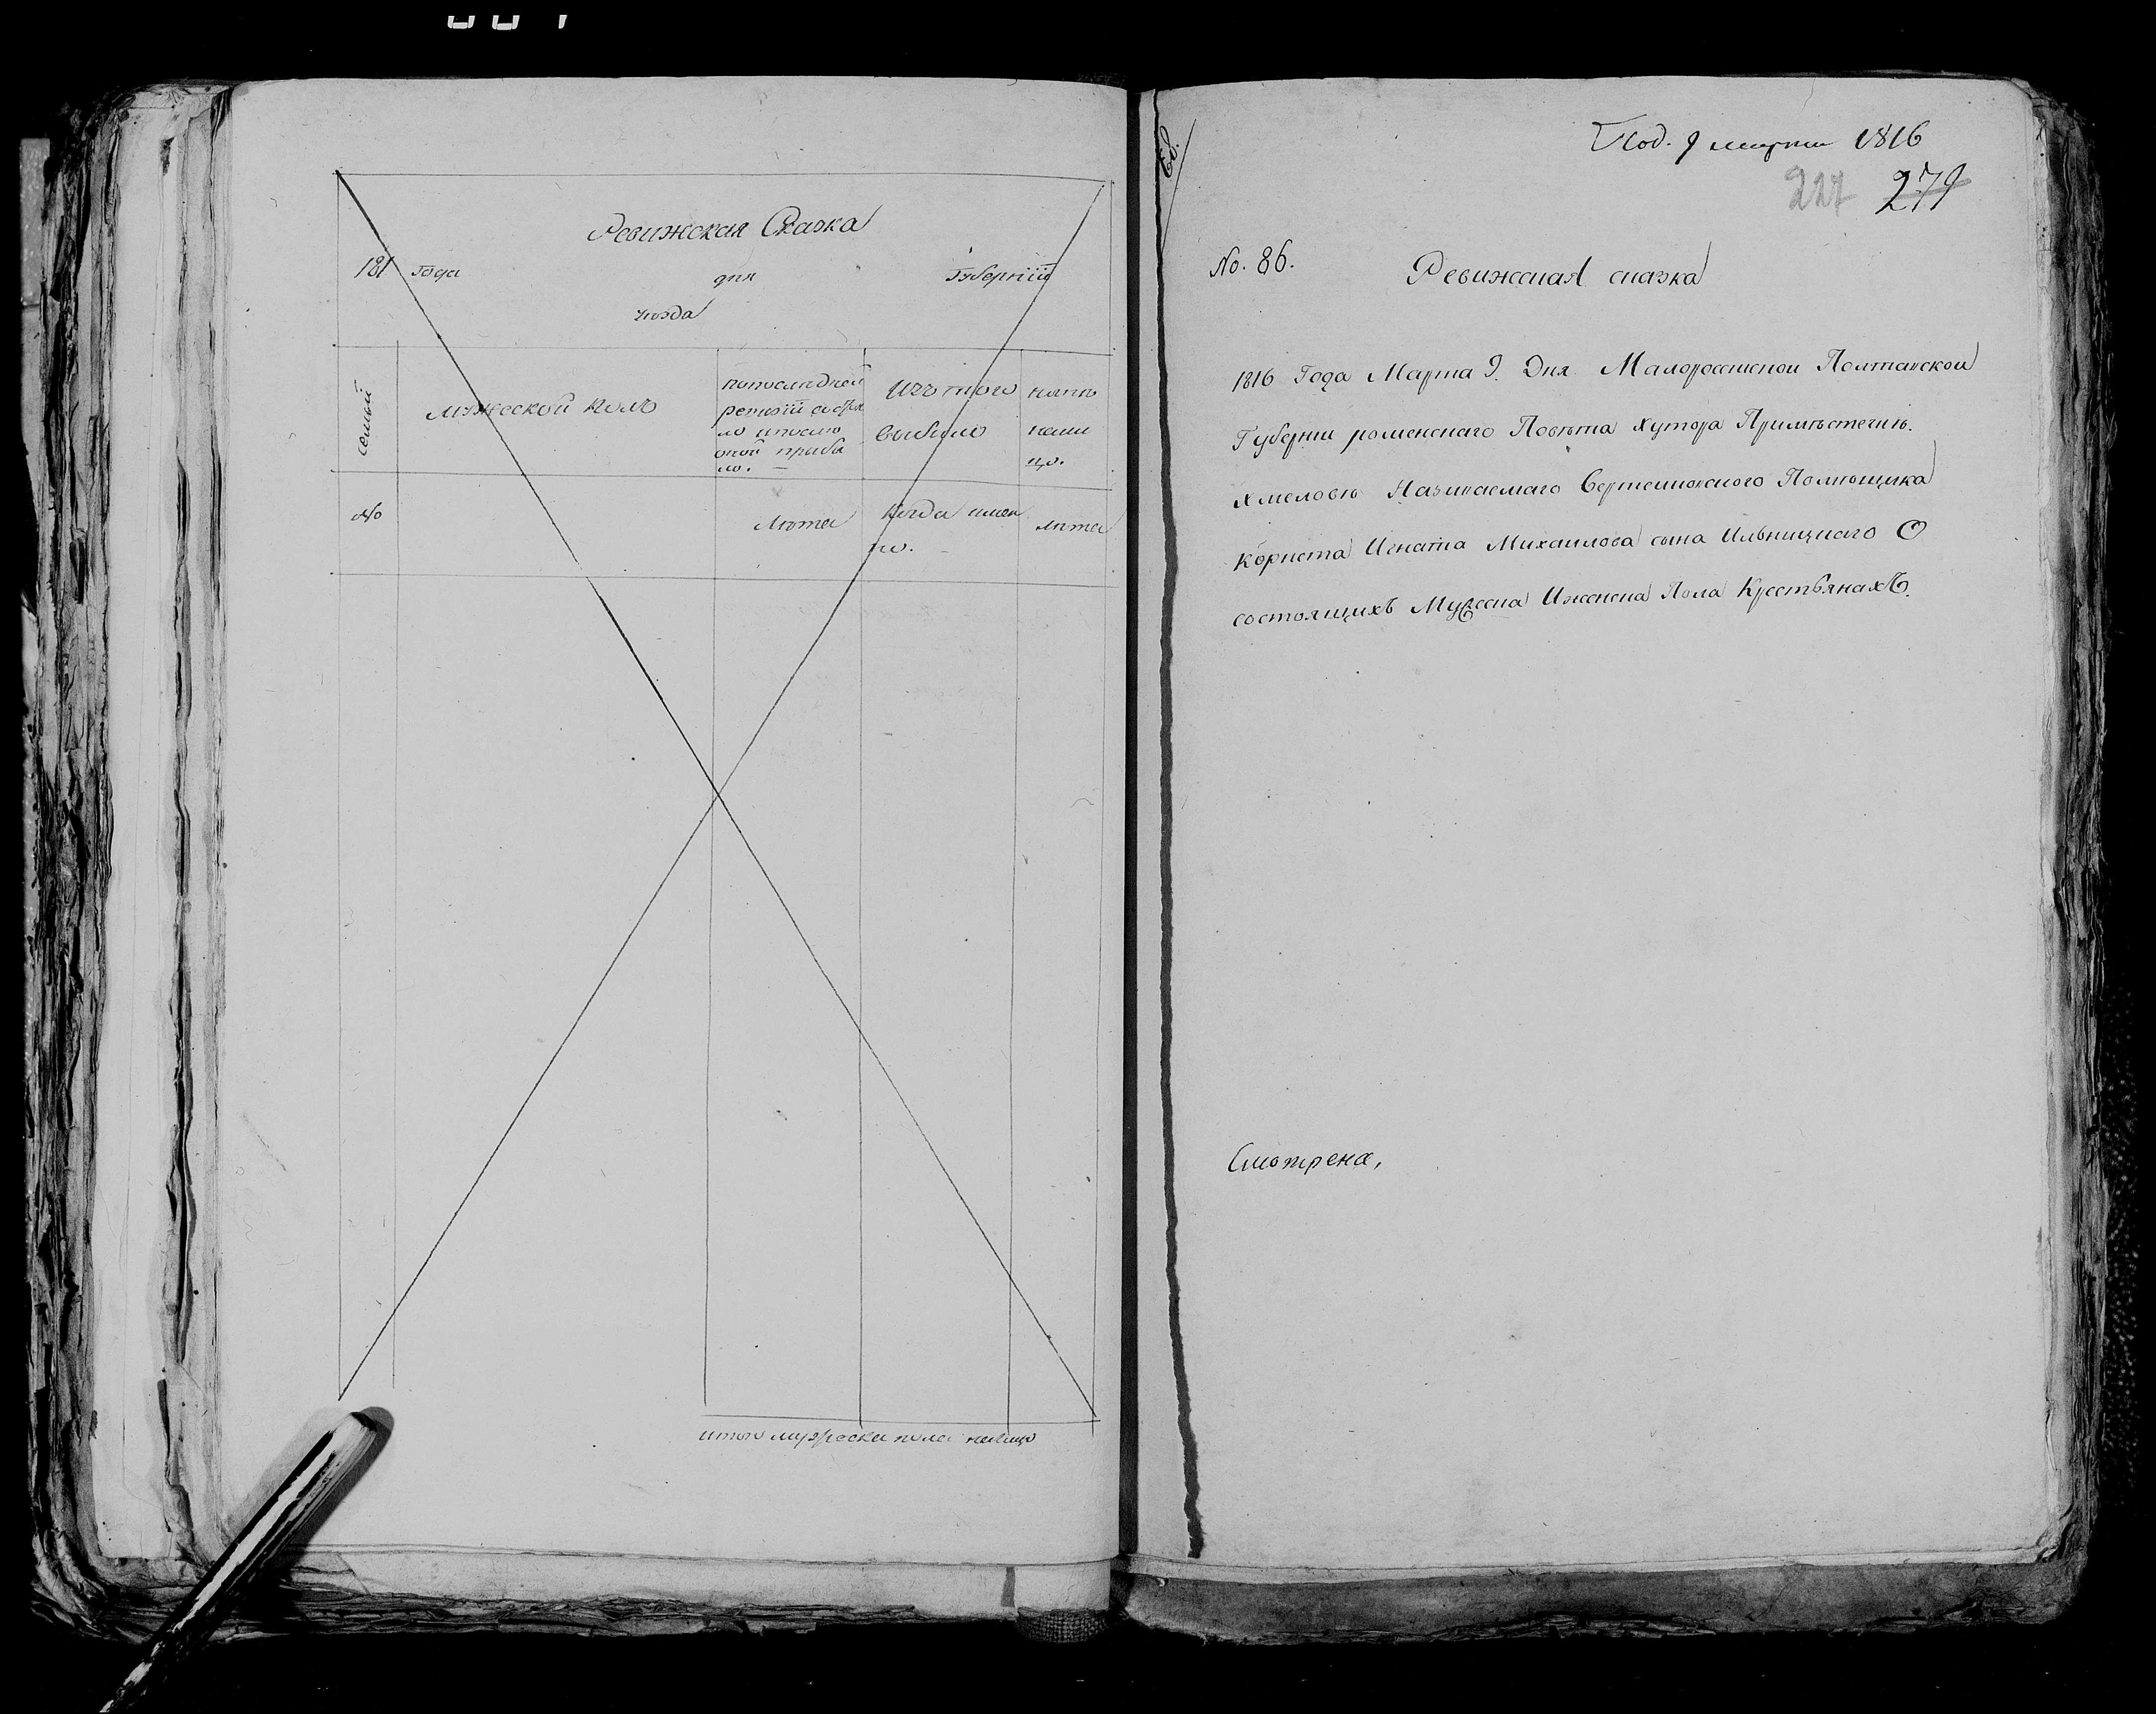 Ревижская Сказка
181 года дня Губернiи
уезда
семьи
мужеской полъ
попоследней ревизiи состоя
ло ипосле
оной прибы
ло.
Изъ того
выбыло
ныне
нали
цо.
No
лета
Когда имен
но.
лета
итого мужеска пола налицо
Под. 9 марта 1816
227 279
No. 86.
Ревижская сказка
1816 Года Марта 9. Дня. Малоросиской Полтавской
Губернии роменского Повѣта Хутора Приместечке.
Хмелове Називаемаго Помѣщика
Корнета Игната Михаилова сина Илвницкого О
состоящихъ Мужеска Иженска Пола КрестьянахЪ.
Смотрена,